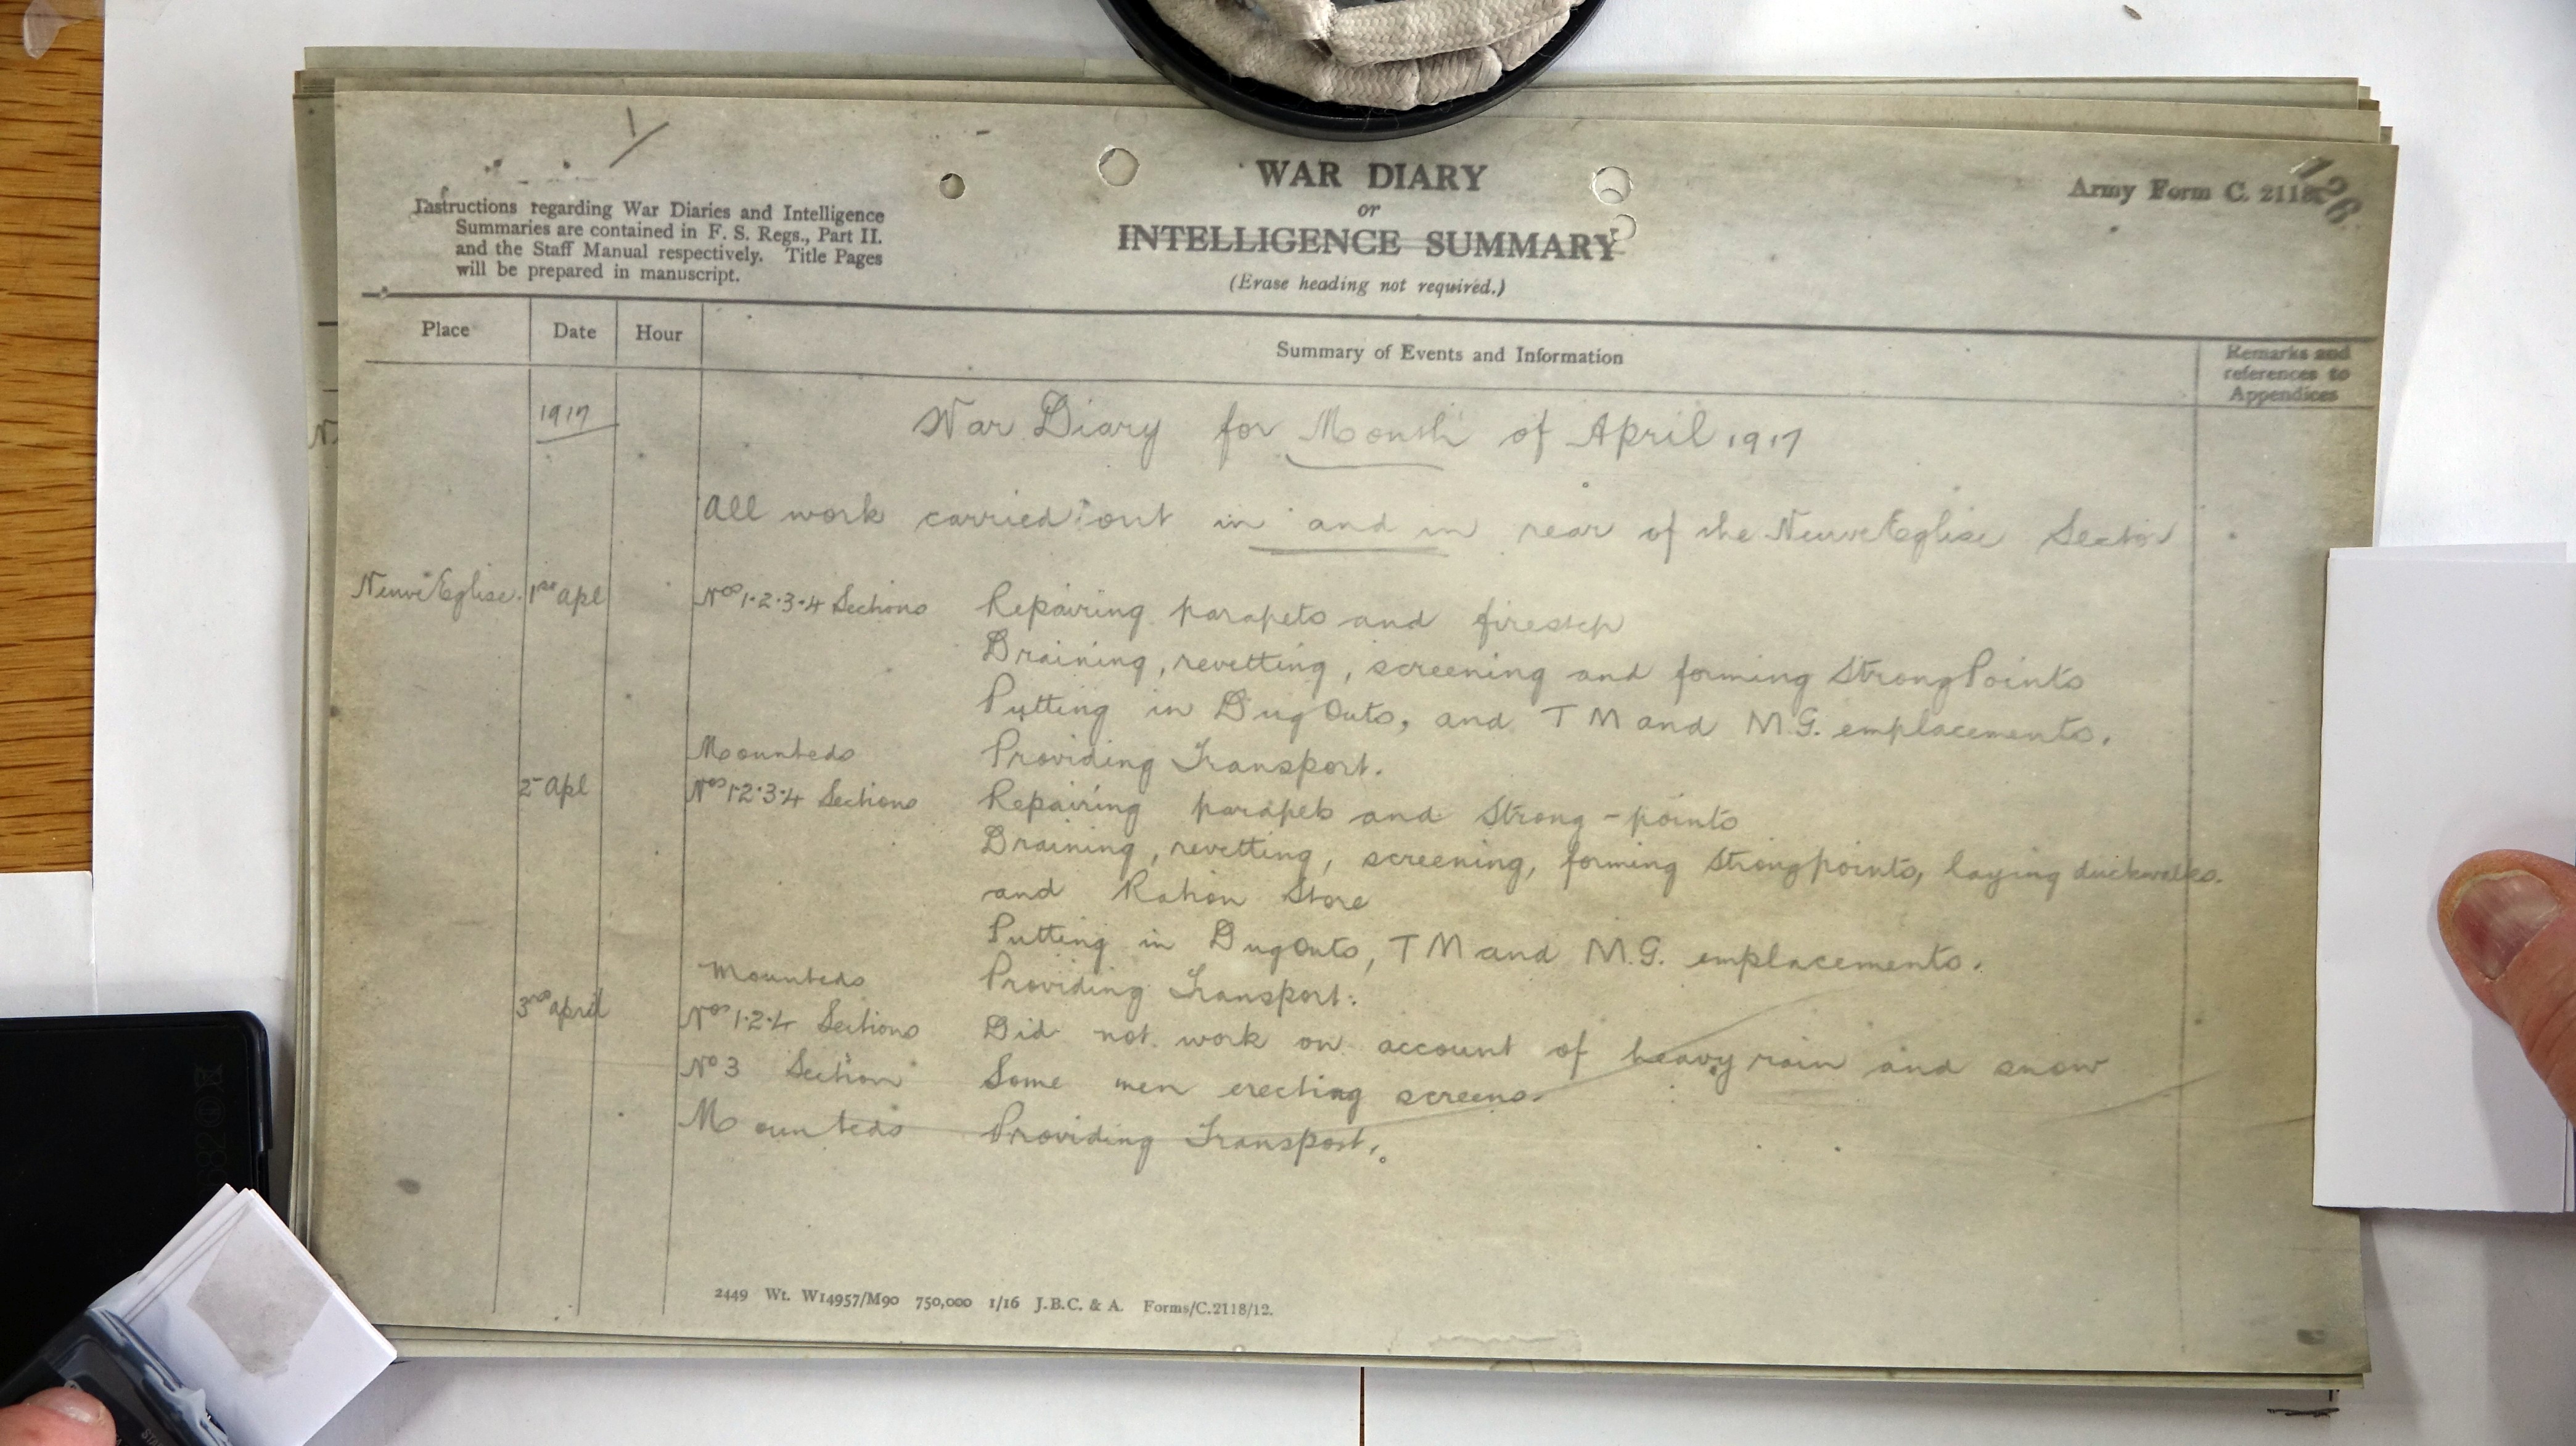 1/
WAR DIARY
or
INTELLIGENCE SUMMARY
(Erase heading not required.)
Army Form C. 2118.
126
Instructions regarding War Diaries and Intelligence
Summaries are contained in F. S. Regs., Part II.
and the Staff Manual respectively. Title Pages
will be prepared in manuscript.
Place Date Hour Summary of Events and Information Remarks and references to Appendices
1917 War Diary for Month of April 1917
All work carried out in and in rear of the Neuve Eglise Sector
Neuve Eglise. 1st Apl Nos 1.2.3.4 Sections Repairing parapets and firestep
Draining, revetting, screening and forming Strong Points
Putting in Dug Outs, and T M and M.G. emplacements.
Mounteds Providing Transport.
2 Apl Nos 1.2.3.4 Sections Repairing parapets and Strong-points
Draining, revetting, screening, forming strongpoints, laying duckwalks.
and Ration Store
Putting in DugOuts, T M and M.G. emplacements.
Mounteds Providing Transport.
3rd April Nos 1.2.4 Sections Did not work on account of heavy rain and snow
No 3 Section Some men erecting screens.
Mounteds Providing Transport.
2449 Wt. W14957/M90 750,000 1/16 J.B.C. & A. Forms/C.2118/12.